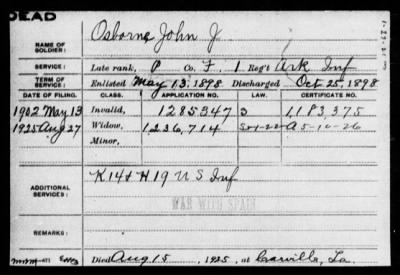 DEAD
NAME OF SOLDIER: Osborne John J
SERVICE: Late rank, P Co. F, 1 Reg't Ark Inf
TERM OF SERVICE: Enlisted May 13, 1898 Discharged Oct 25, 1898
DATE OF FILING. CLASS. APPLICATION NO. LAW. CERTIFICATE NO.
1902 May 13 Invalid, 1285347 1,183,375
1925 Aug 27 Widow, 1,236,714 A 5-10-26
Minor,
ADDITIONAL SERVICES: K 14 & H 19 U S Inf
WAR WITH SPAIN
REMARKS:
Died Aug 15, 1925, at Carville, La.